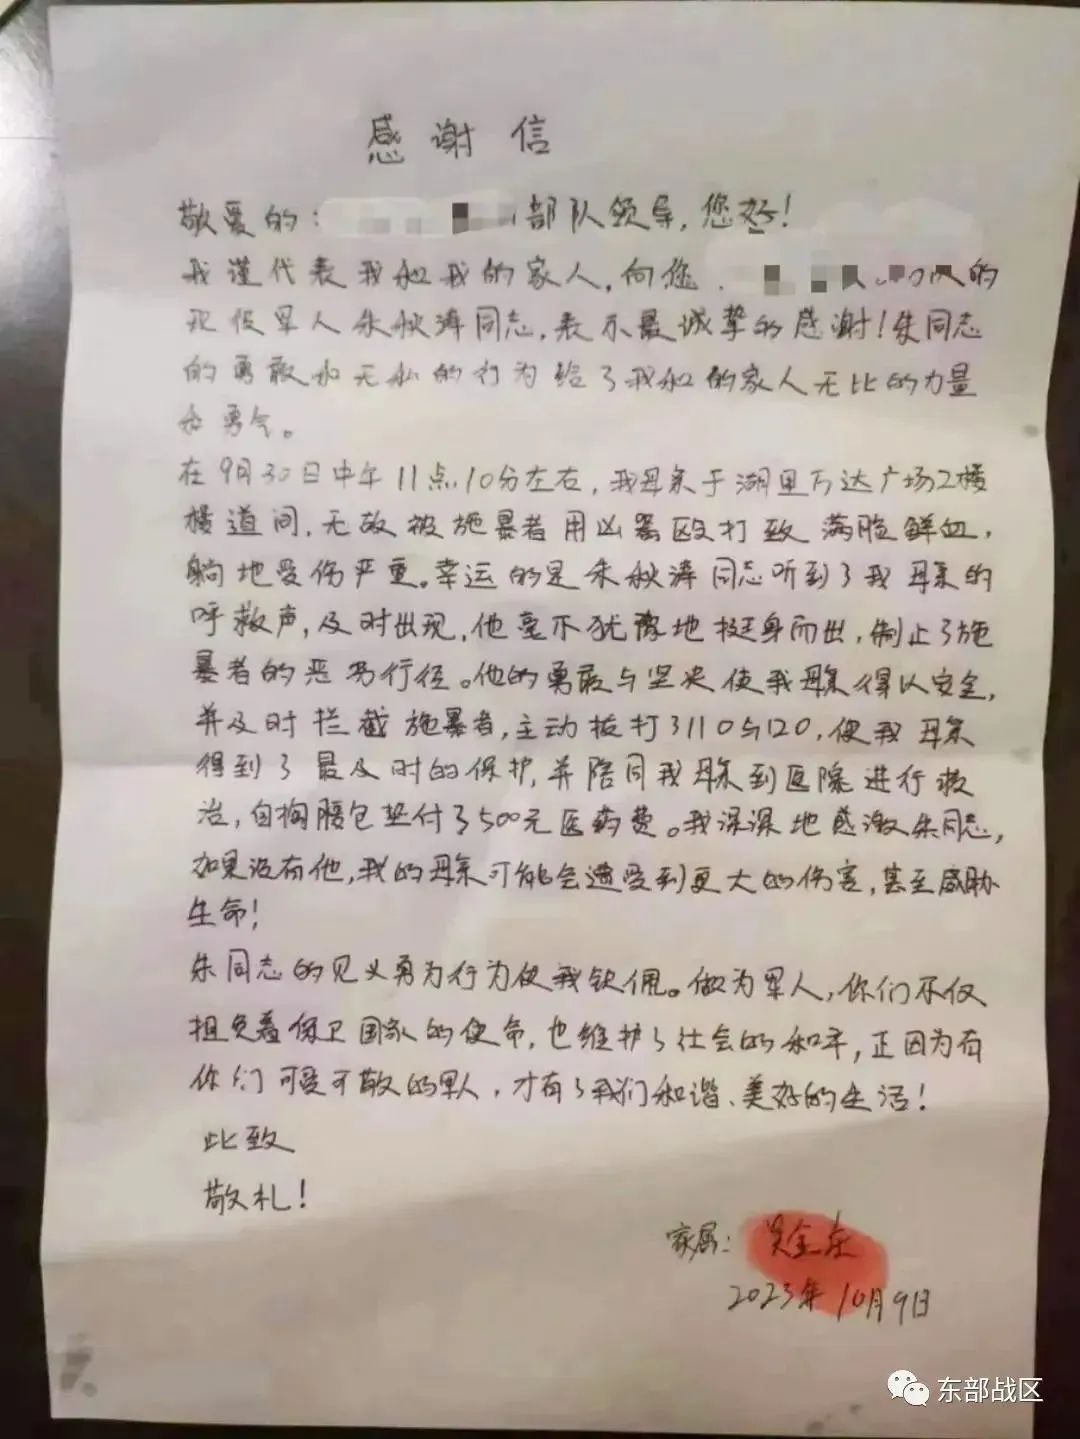 感谢信
敬爱的：部队领导，您好！
我谨代表我和我的家人，向您的
现役军人朱秋涛同志，表示最诚挚的感谢！朱同志
的勇敢和无私的行为给了我和的家人无比的力量
和勇气。
在9月30日中午11点10分左右，我母亲于湖里万达广场2楼
楼道间，无故被施暴者用凶器殴打致满脸鲜血，
躺地受伤严重。幸运的是朱秋涛同志听到了我母亲的
呼救声，及时出现，他毫不犹豫地挺身而出，制止了施
暴者的恶劣行径。他的勇敢与坚决使我母亲得以安全，
并及时拦截施暴者，主动拨打了110与120，使我母亲
得到了最及时的保护，并陪同我母亲到医院进行救
治，自掏腰包垫付了500元医药费。我深深地感激朱同志，
如果没有他，我的母亲可能会遭受到更大的伤害，甚至威胁
生命！
朱同志的见义勇为行为使我钦佩。做为军人，你们不仅
担负着保卫国家的使命，也维护了社会的和平，正因为有
你们可爱可敬的军人，才有了我们和谐、美好的生活！
此致
敬礼！
家属：吴金东
2023年10月9日
东部战区